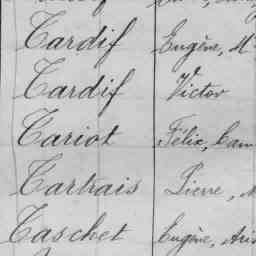 Tardif Eugène, M
Tardif Victor
Tariot Félix, Cam
Tartrais Pierre, M
Taschet Eugène, Aris